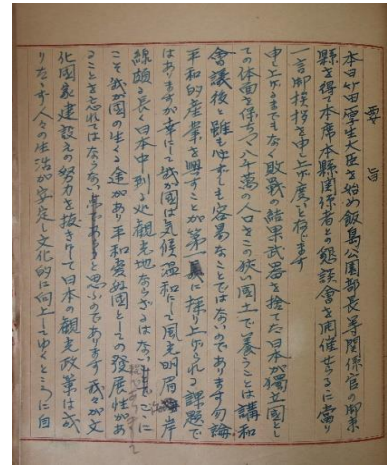 要旨
本日竹田厚生大臣を始め飯島公園部長等関係官の御来
縣を得て本席本縣関係者との懇談會を開催せらるに當り
一言御挨拶を申し上げ度いと存じます
申し上げるまでもなく敗戰の結果武器を捨てた日本が獨立國とし
ての体面を保ちつつ八千萬の人口をこの狭い國土で養うことは講和
會議後と雖も必ずしも容易なことではないのであります勿論
平和的産業を興すことが第一に採り上げられる課題で
はありますが幸にして我が國は気候温和にして風光明眉 岸
線頗る長く日本中到る処観光地ならざるはなし ここに
こそ我が国の生くる途があり平和愛好國としての發展性があ
ることを忘れてはならない であると思ふのであります 我々が文
化國家建設えの努力を抜きにして日本の観光政策は成
りたたず人々の生活が安定し文化的に向上してゆくところに自